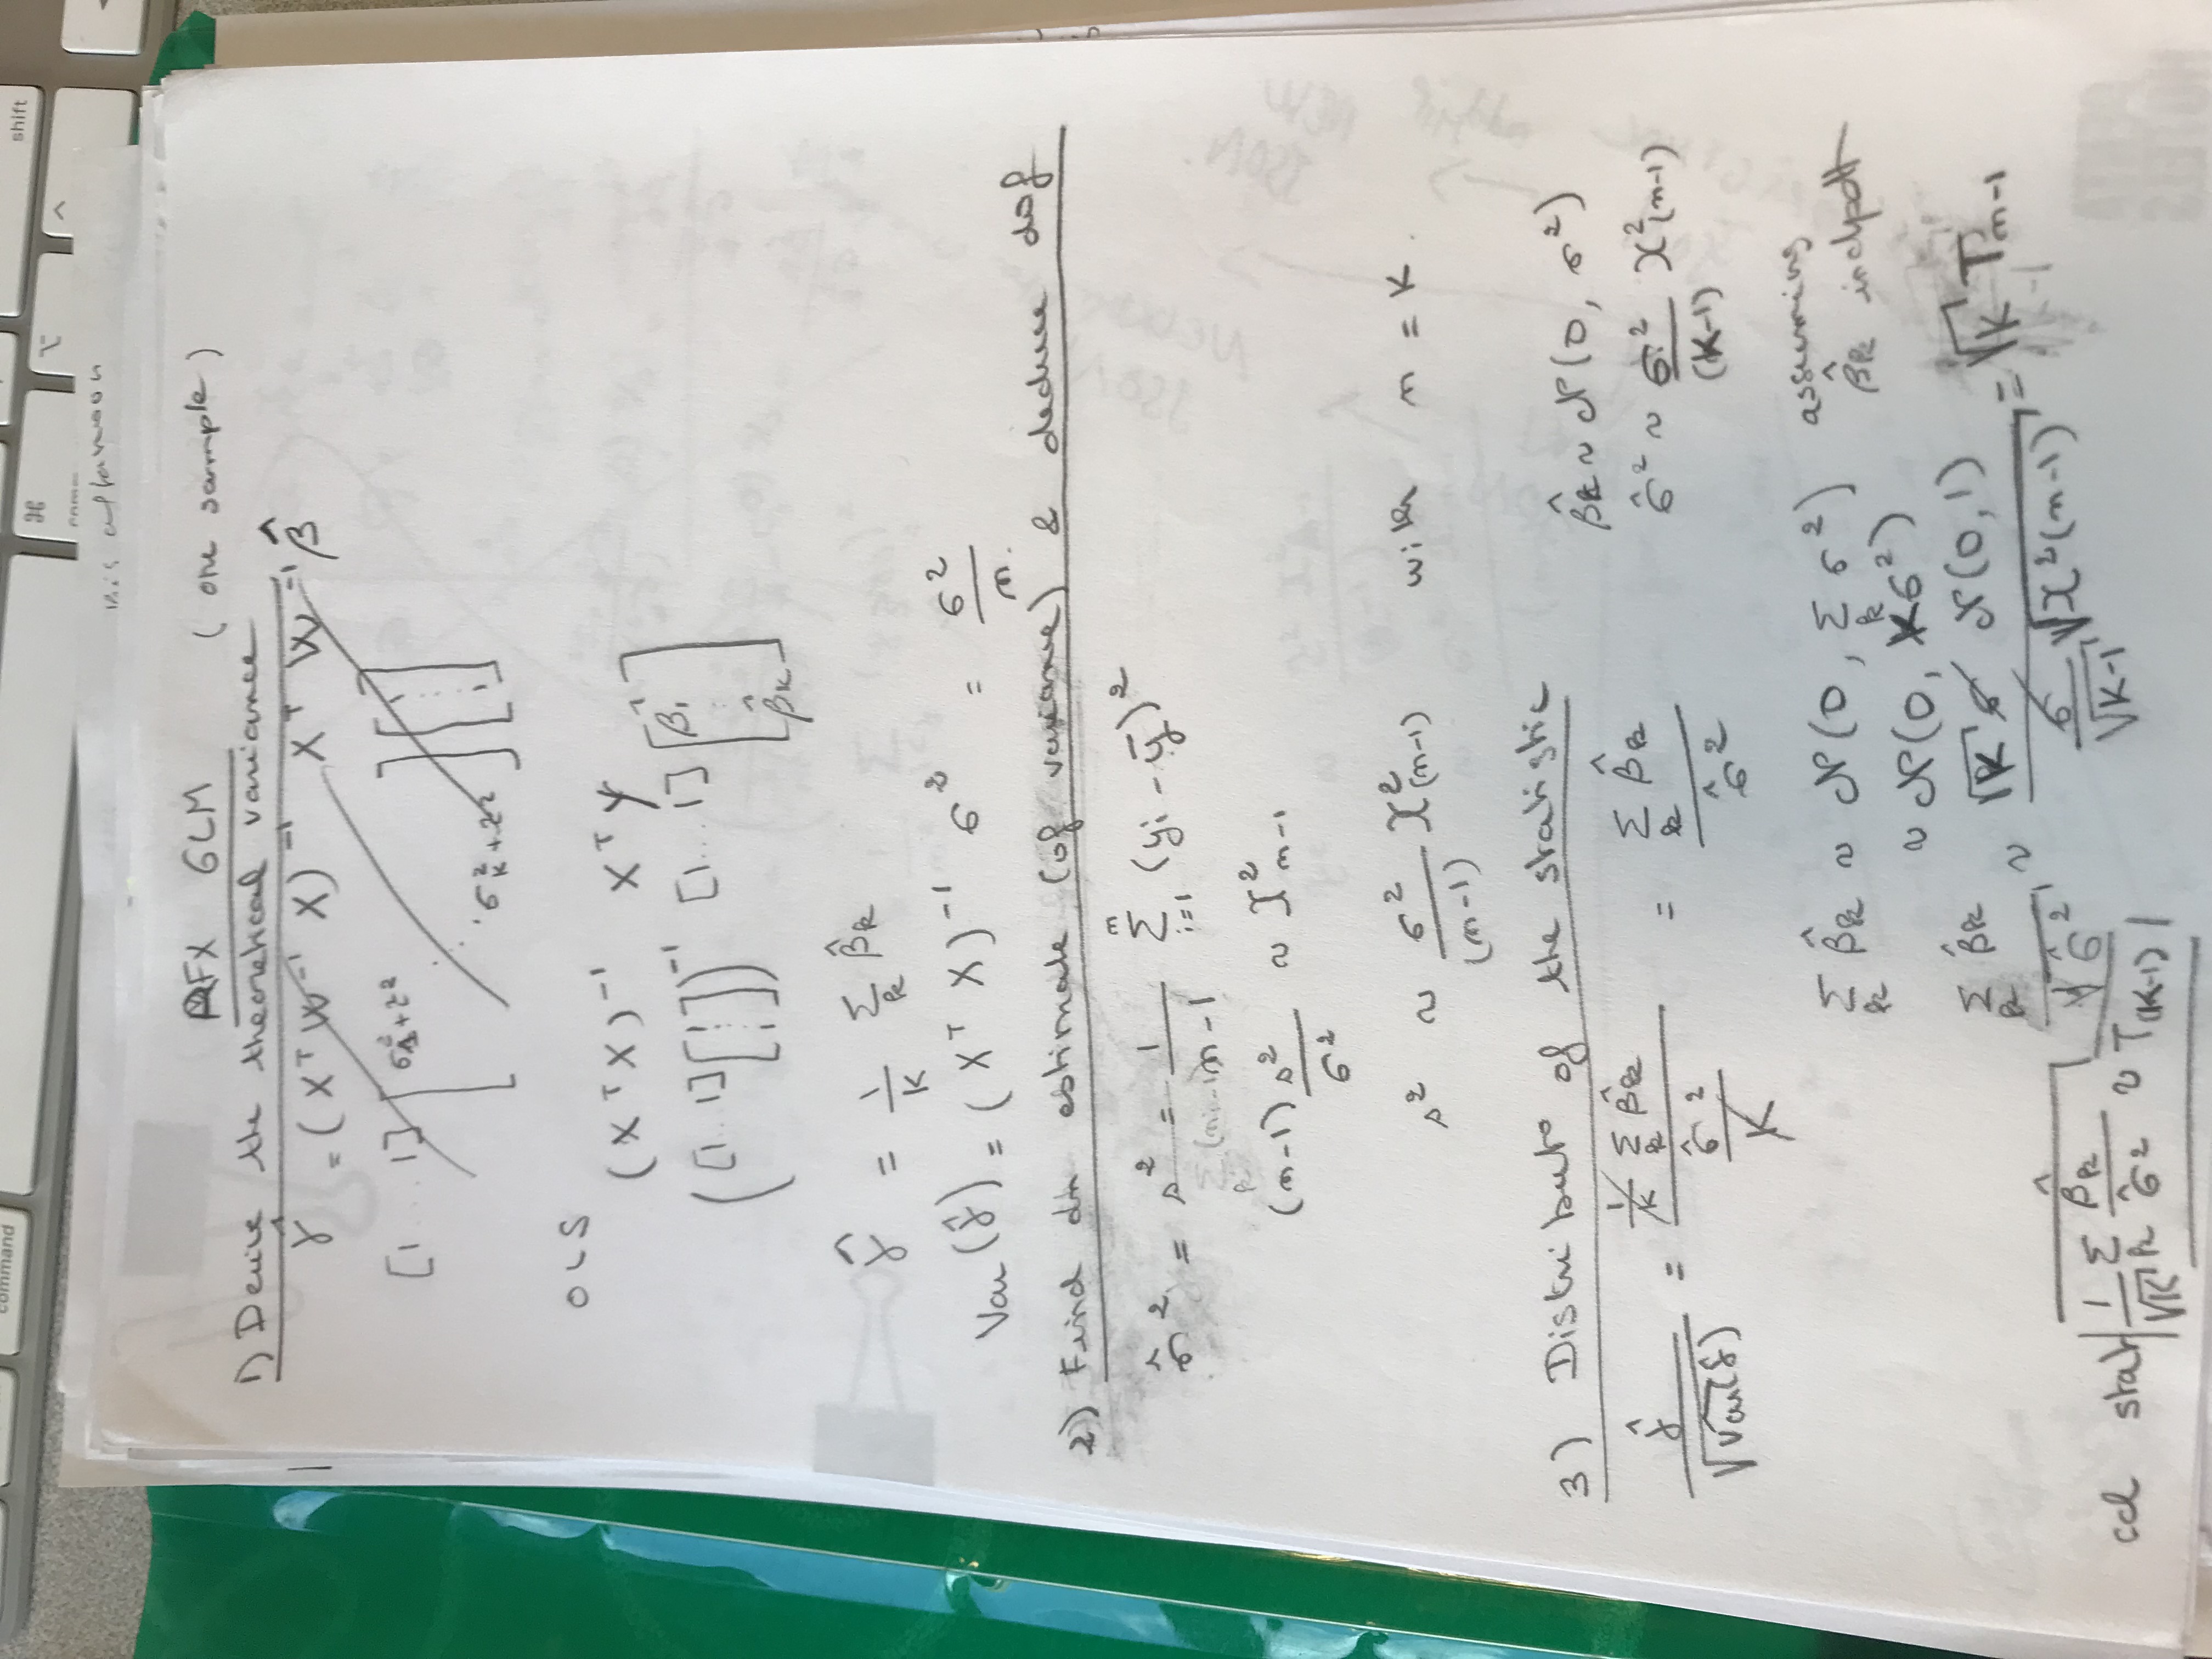 command
⌘
⌥
^
shift
this afternoon
RFX GLM (one sample)
1) Derive the theoretical variance
γ̂ = (Xᵀ W⁻¹ X)⁻¹ Xᵀ W⁻¹ β̂
[1 ... 1] [σ₁²+τ² ... σ_K²+τ²] [1 ... 1]
OLS
(XᵀX)⁻¹ XᵀY
([1..1][1 ... 1])⁻¹ [1...1] [β̂₁ ... β̂_K]
γ̂ = 1/K Σ_k β̂_k
Var(γ̂) = (Xᵀ X)⁻¹ σ² = σ²/n.
2) Find an estimate (of variance) & deduce dof
σ̂² = s² = 1/(n-1) Σ_{i=1}^{n} (yi - ȳ)²
(n-1) s²/σ² ~ χ²_{n-1}
s² ~ σ²/(n-1) χ²(n-1) with n = K.
3) Distributᵒ of the statistic
β̂_k ~ N(0, σ²)
γ̂/√Var(γ̂) = (1/K Σ_k β̂_k)/(σ̂²/K) = (Σ_k β̂_k)/σ̂²
σ̂² ~ σ²/(K-1) χ²(n-1)
Σ_k β̂_k ~ N(0, Σ_k σ²) assuming
β̂_k indpdt
~ N(0, Kσ²)
(Σ_k β̂_k)/√σ̂² ~ (√K σ N(0,1))/(σ/√(K-1) √χ²(n-1)) = √K T_{n-1}
ccl stat 1/√K Σ_k β̂_k/σ̂² ~ T(K-1)